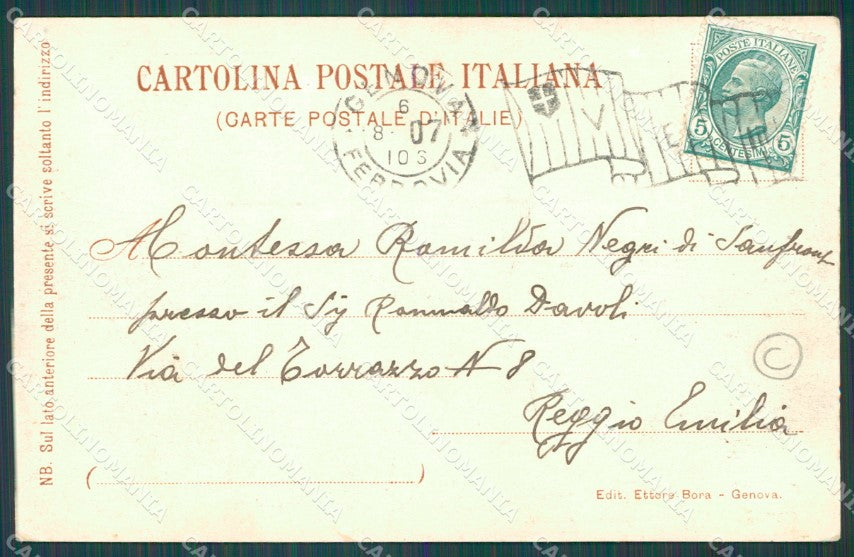 CARTOLINA POSTALE ITALIANA
(CARTE POSTALE D'ITALIE)
GENOVA
6
8 07
10 S
FERROVIA
POSTE ITALIANE
5 5
CENTESIMI
NB. Sul lato anteriore della presente si scrive soltanto l'indirizzo
Contessa Romilda Negri di Sanfront
presso il Sig Romualdo Davoli
Via del Torrazzo N 8
Reggio Emilia
C
( )
Edit. Ettore Bora - Genova.
CARTOLINOMANIA